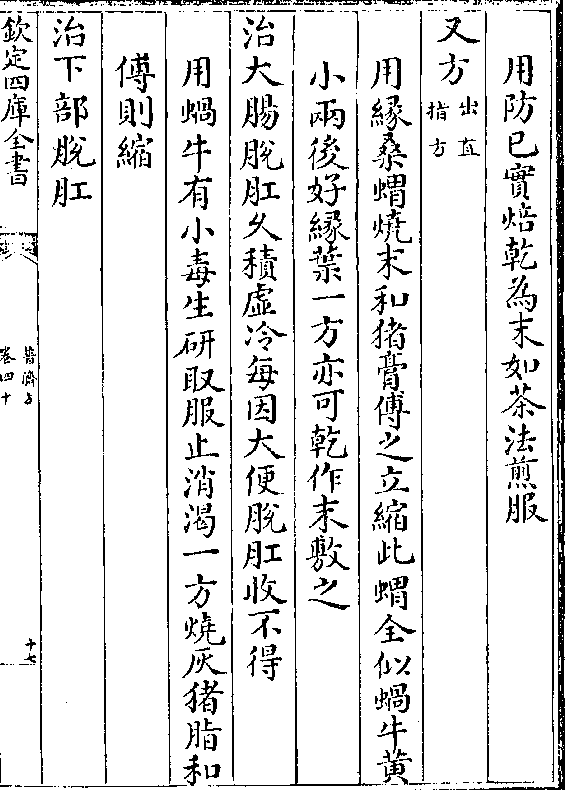 用防已實焙乾為末如茶法煎服
又方出直指方
用緣桑螺燒末和猪膏傅之立縮此螺全似蝸牛黄
小雨後好緣葉一方亦可乾作末敷之
治大腸脫肛久積虛冷每因大便脫肛收不得
用蝸牛有小毒生研取服止消渴一方燒灰猪脂和
傅則縮
治下部脫肛
欽定四庫全書
普濟方
卷四十
十七